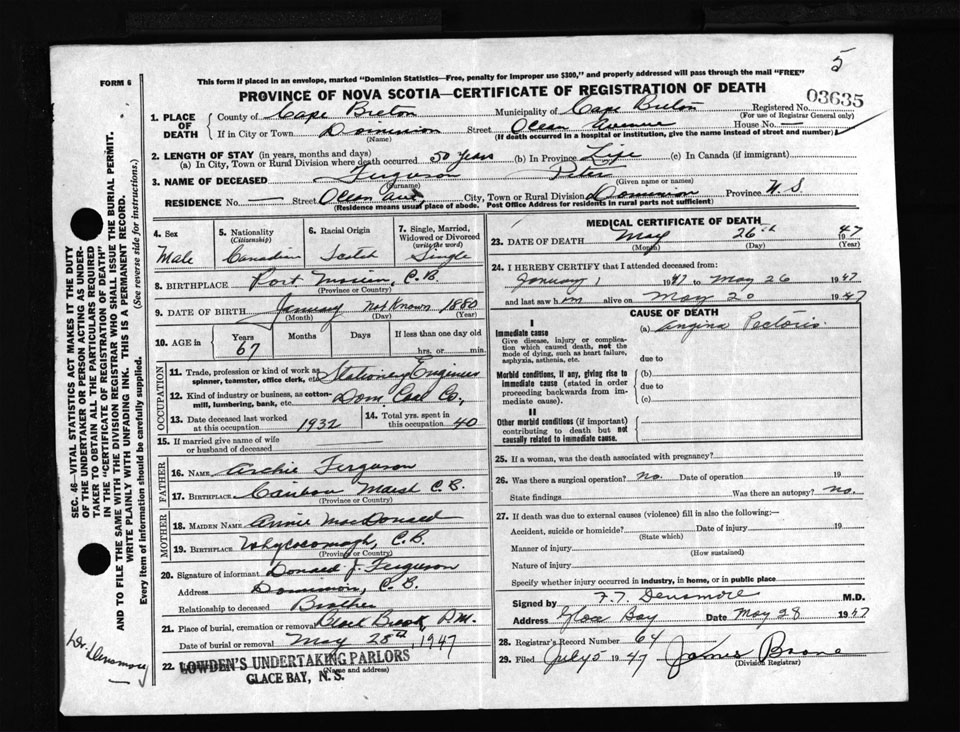 5
This form if placed in an envelope, marked "Dominion Statistics—Free, penalty for improper use $300," and properly addressed will pass through the mail "FREE"
FORM 6
PROVINCE OF NOVA SCOTIA—CERTIFICATE OF REGISTRATION OF DEATH
03635
1. PLACE OF DEATH
County of Cape Breton Municipality of Cape Breton Registered No.
(For use of Registrar General only)
If in City or Town Dominion Street House No. —
(Name) (If death occurred in a hospital or institution, give the name instead of street and number)
2. LENGTH OF STAY (in years, months and days)
(a) In City, Town or Rural Division where death occurred 50 years (b) In Province Life (c) In Canada (if immigrant)
3. NAME OF DECEASED Ferguson Peter
(Surname) (Given name or names)
RESIDENCE No. — Street City, Town or Rural Division Dominion Province N.S.
(Residence means usual place of abode. Post Office Address for residents in rural parts not sufficient)
4. Sex
Male
5. Nationality
(Citizenship)
Canadian
6. Racial Origin
Scotch
7. Single, Married, Widowed or Divorced
(write the word)
Single
8. BIRTHPLACE Port Morien, C.B.
(Province or Country)
9. DATE OF BIRTH January Not Known 1880
(Month) (Day) (Year)
10. AGE in
Years
67
Months
Days
If less than one day old
hrs. or min.
OCCUPATION
11. Trade, profession or kind of work as spinner, teamster, office clerk, etc. Stationery Engineer
12. Kind of industry or business, as cotton-mill, lumbering, bank, etc. Dom Coal Co,
13. Date deceased last worked at this occupation 1932
14. Total yrs. spent in this occupation 40
15. If married give name of wife or husband of deceased
FATHER
16. NAME Archie Ferguson
17. BIRTHPLACE Caribou Marsh C.B.
(Province or Country)
MOTHER
18. MAIDEN NAME Annie MacDonald
19. BIRTHPLACE Whycocomagh, C.B.
(Province or Country)
20. Signature of informant Donald J. Ferguson
Address Dominion, C.B.
Relationship to deceased Brother
21. Place of burial, cremation or removal Black Brook, P.M.
Date of burial or removal May 28th 1947
22. LOWDEN'S UNDERTAKING PARLORS
(Name and address)
GLACE BAY, N. S.
MEDICAL CERTIFICATE OF DEATH
23. DATE OF DEATH May 26th 1947
(Month) (Day) (Year)
24. I HEREBY CERTIFY that I attended deceased from:
January 1 1947 to May 26 1947
and last saw him alive on May 20 1947
CAUSE OF DEATH
I
Immediate cause
Give disease, injury or complication which caused death, not the mode of dying, such as heart failure, asphyxia, asthenia, etc.
(a) Angina Pectoris.
due to
Morbid conditions, if any, giving rise to immediate cause (stated in order proceeding backwards from immediate cause).
(b)
due to
(c)
II
Other morbid conditions (if important) contributing to death but not causally related to immediate cause.
25. If a woman, was the death associated with pregnancy?
26. Was there a surgical operation? no. Date of operation 19
State findings Was there an autopsy? no.
27. If death was due to external causes (violence) fill in also the following:—
Accident, suicide or homicide? Date of injury 19
(State which)
Manner of injury
(How sustained)
Nature of injury
Specify whether injury occurred in industry, in home, or in public place
Signed by F.T. Densmore M.D.
Address Glace Bay Date May 28 1947
28. Registrar's Record Number 64
29. Filed July 5 1947 James Boone
(Division Registrar)
SEC. 46—VITAL STATISTICS ACT MAKES IT THE DUTY
OF THE UNDERTAKER OR PERSON ACTING AS UNDERTAKER TO OBTAIN ALL THE PARTICULARS REQUIRED
IN THE "CERTIFICATE OF REGISTRATION OF DEATH"
AND TO FILE THE SAME WITH THE DIVISION REGISTRAR WHO SHALL ISSUE THE BURIAL PERMIT.
WRITE PLAINLY WITH UNFADING INK. THIS IS A PERMANENT RECORD.
Every item of information should be carefully supplied. (See reverse side for instructions.)
Dr. Densmore